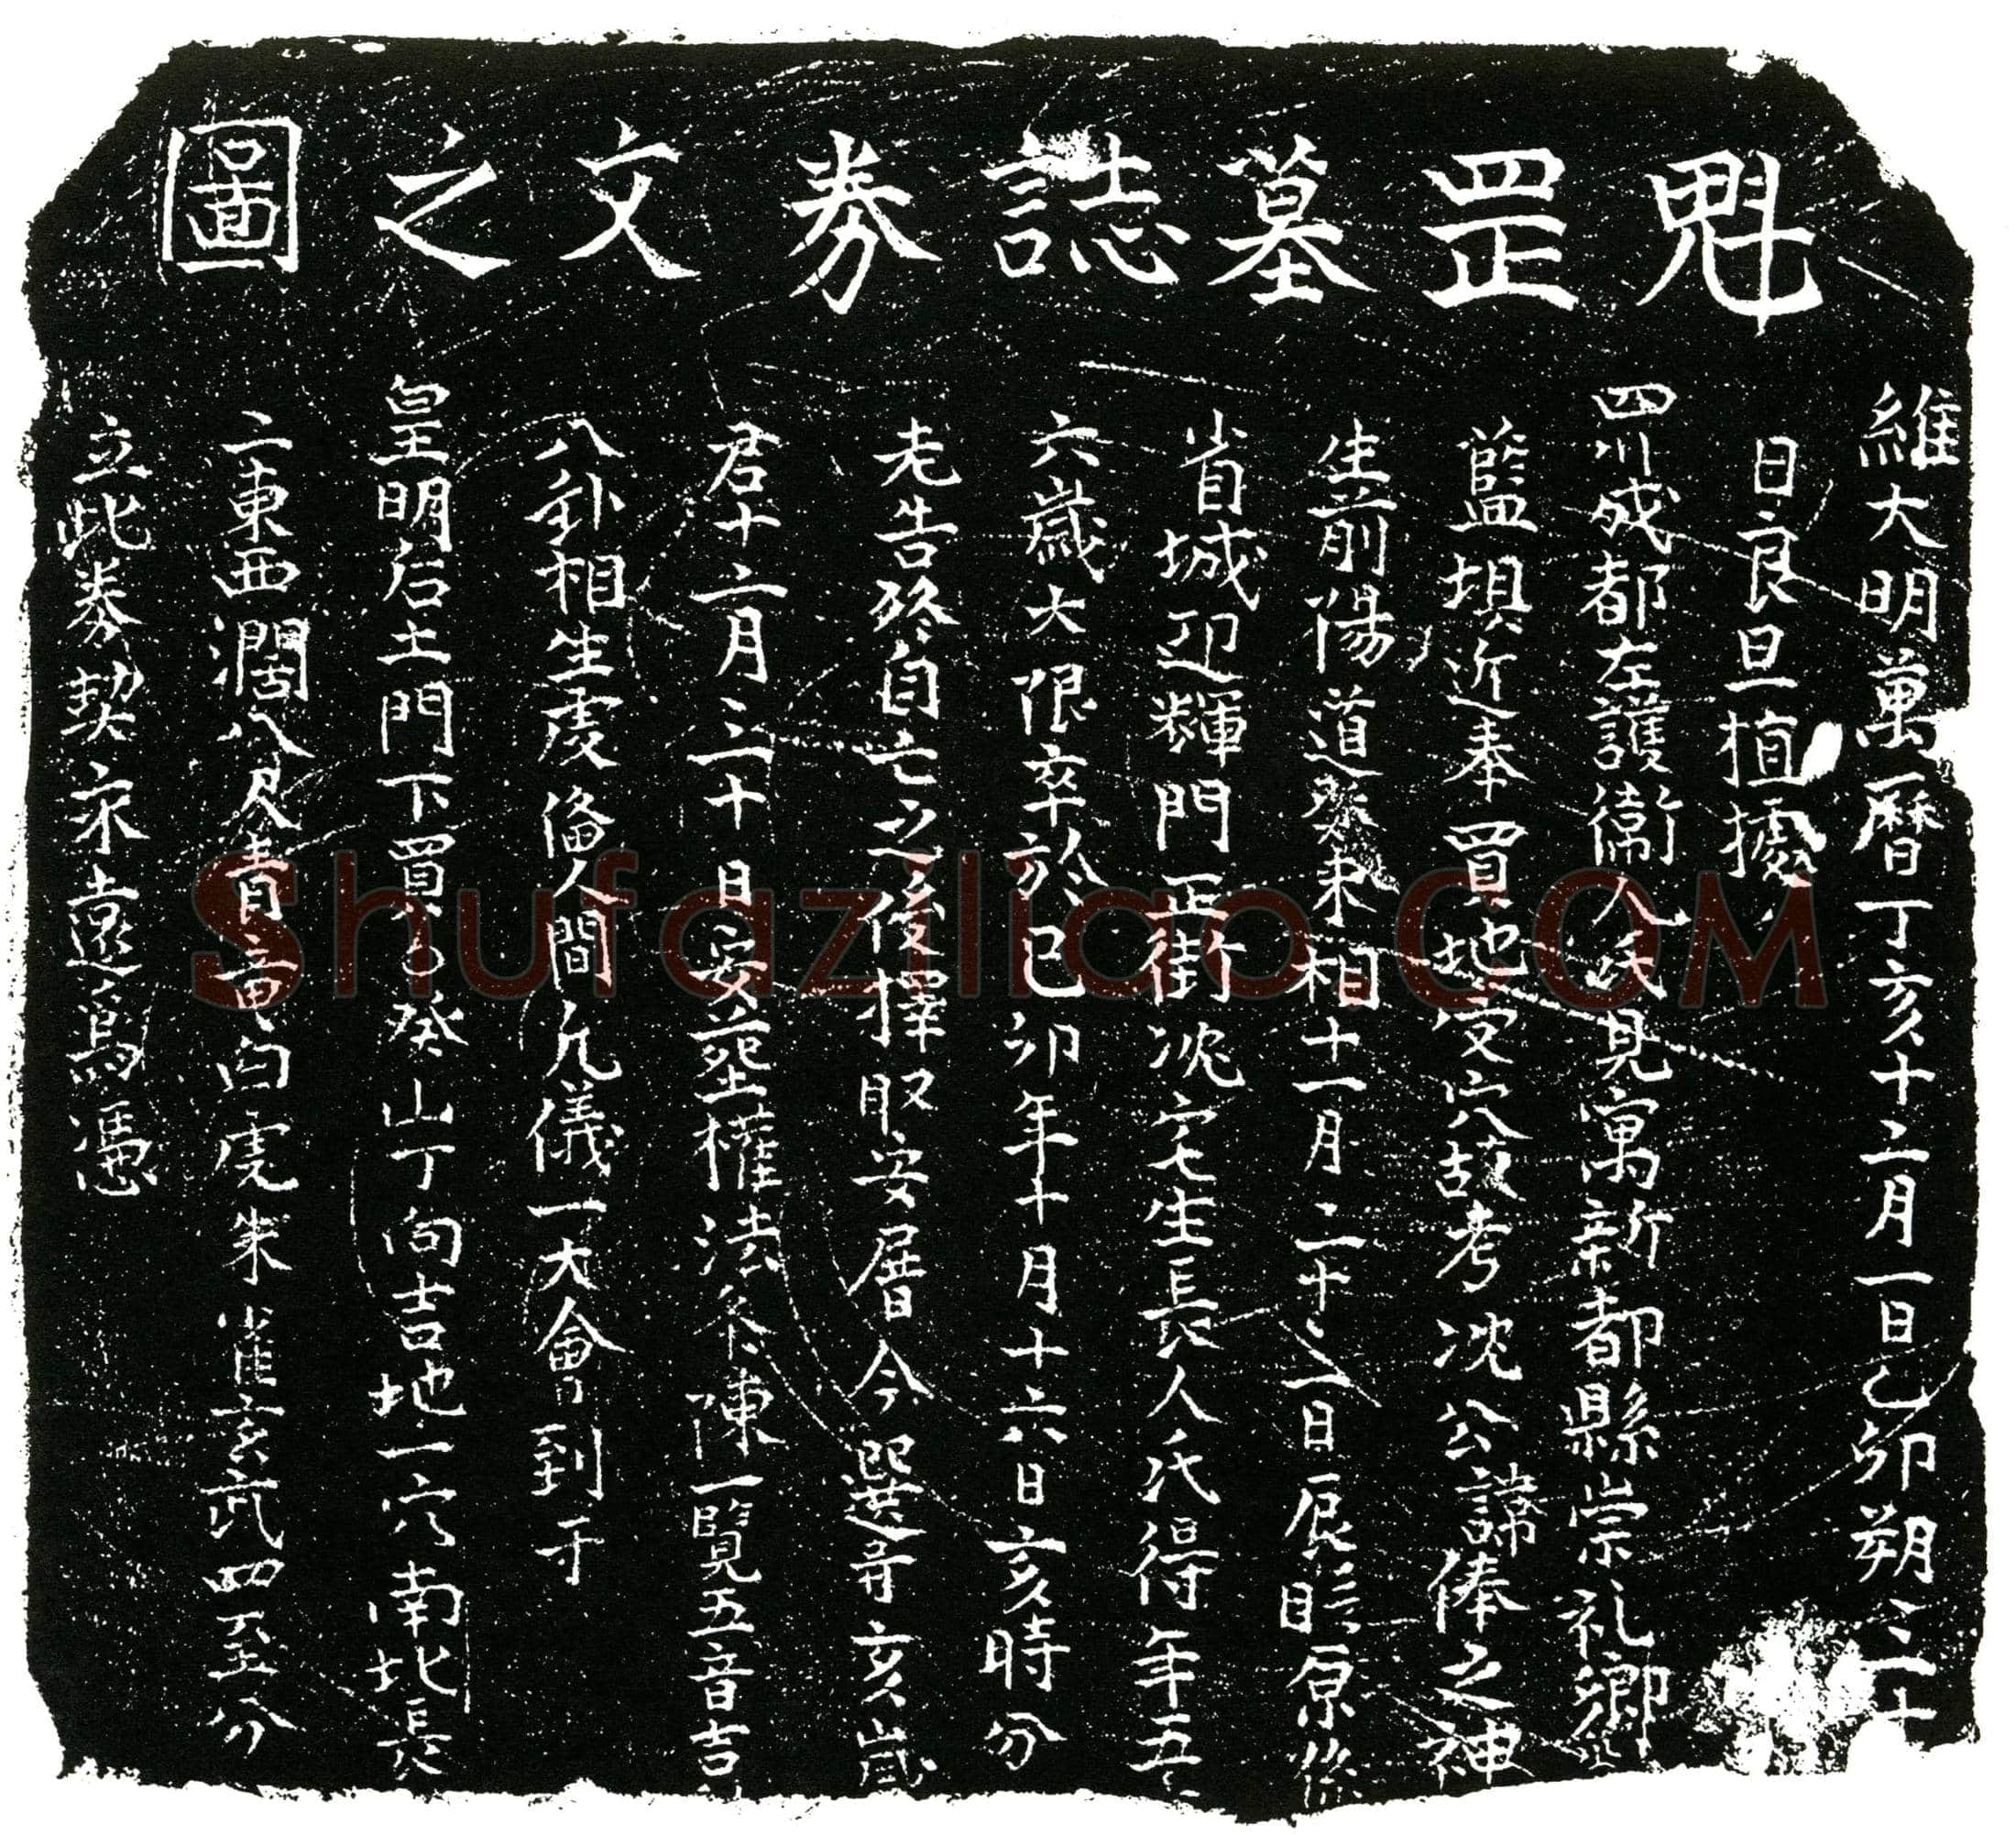 魁罡墓誌券文之圖
維大明萬曆丁亥十二月一日乙卯朔三十
日良旦植據
四川成都左護衛人氏見寓新都縣崇礼鄉
藍垻近奉買地受穴故考沈公諱俸之神
生前陽道癸未相十一月二十二日辰時原係
省城迎輝門正街沈宅生長人氏得年五
六歲大限卒於己卯年十月十六日亥時分
老告終自亡之後擇取安厝今選哥亥歲
君十二月三十日安塟權法條陳一覽五音吉
八卦相生虔備人間凢儀一大會到于
皇明后土門下買到癸山丁向吉地一穴南北長
二東西濶八尺青竜白虎朱雀玄武四至分
立此券契永遠爲憑
Shufaziliao.COM